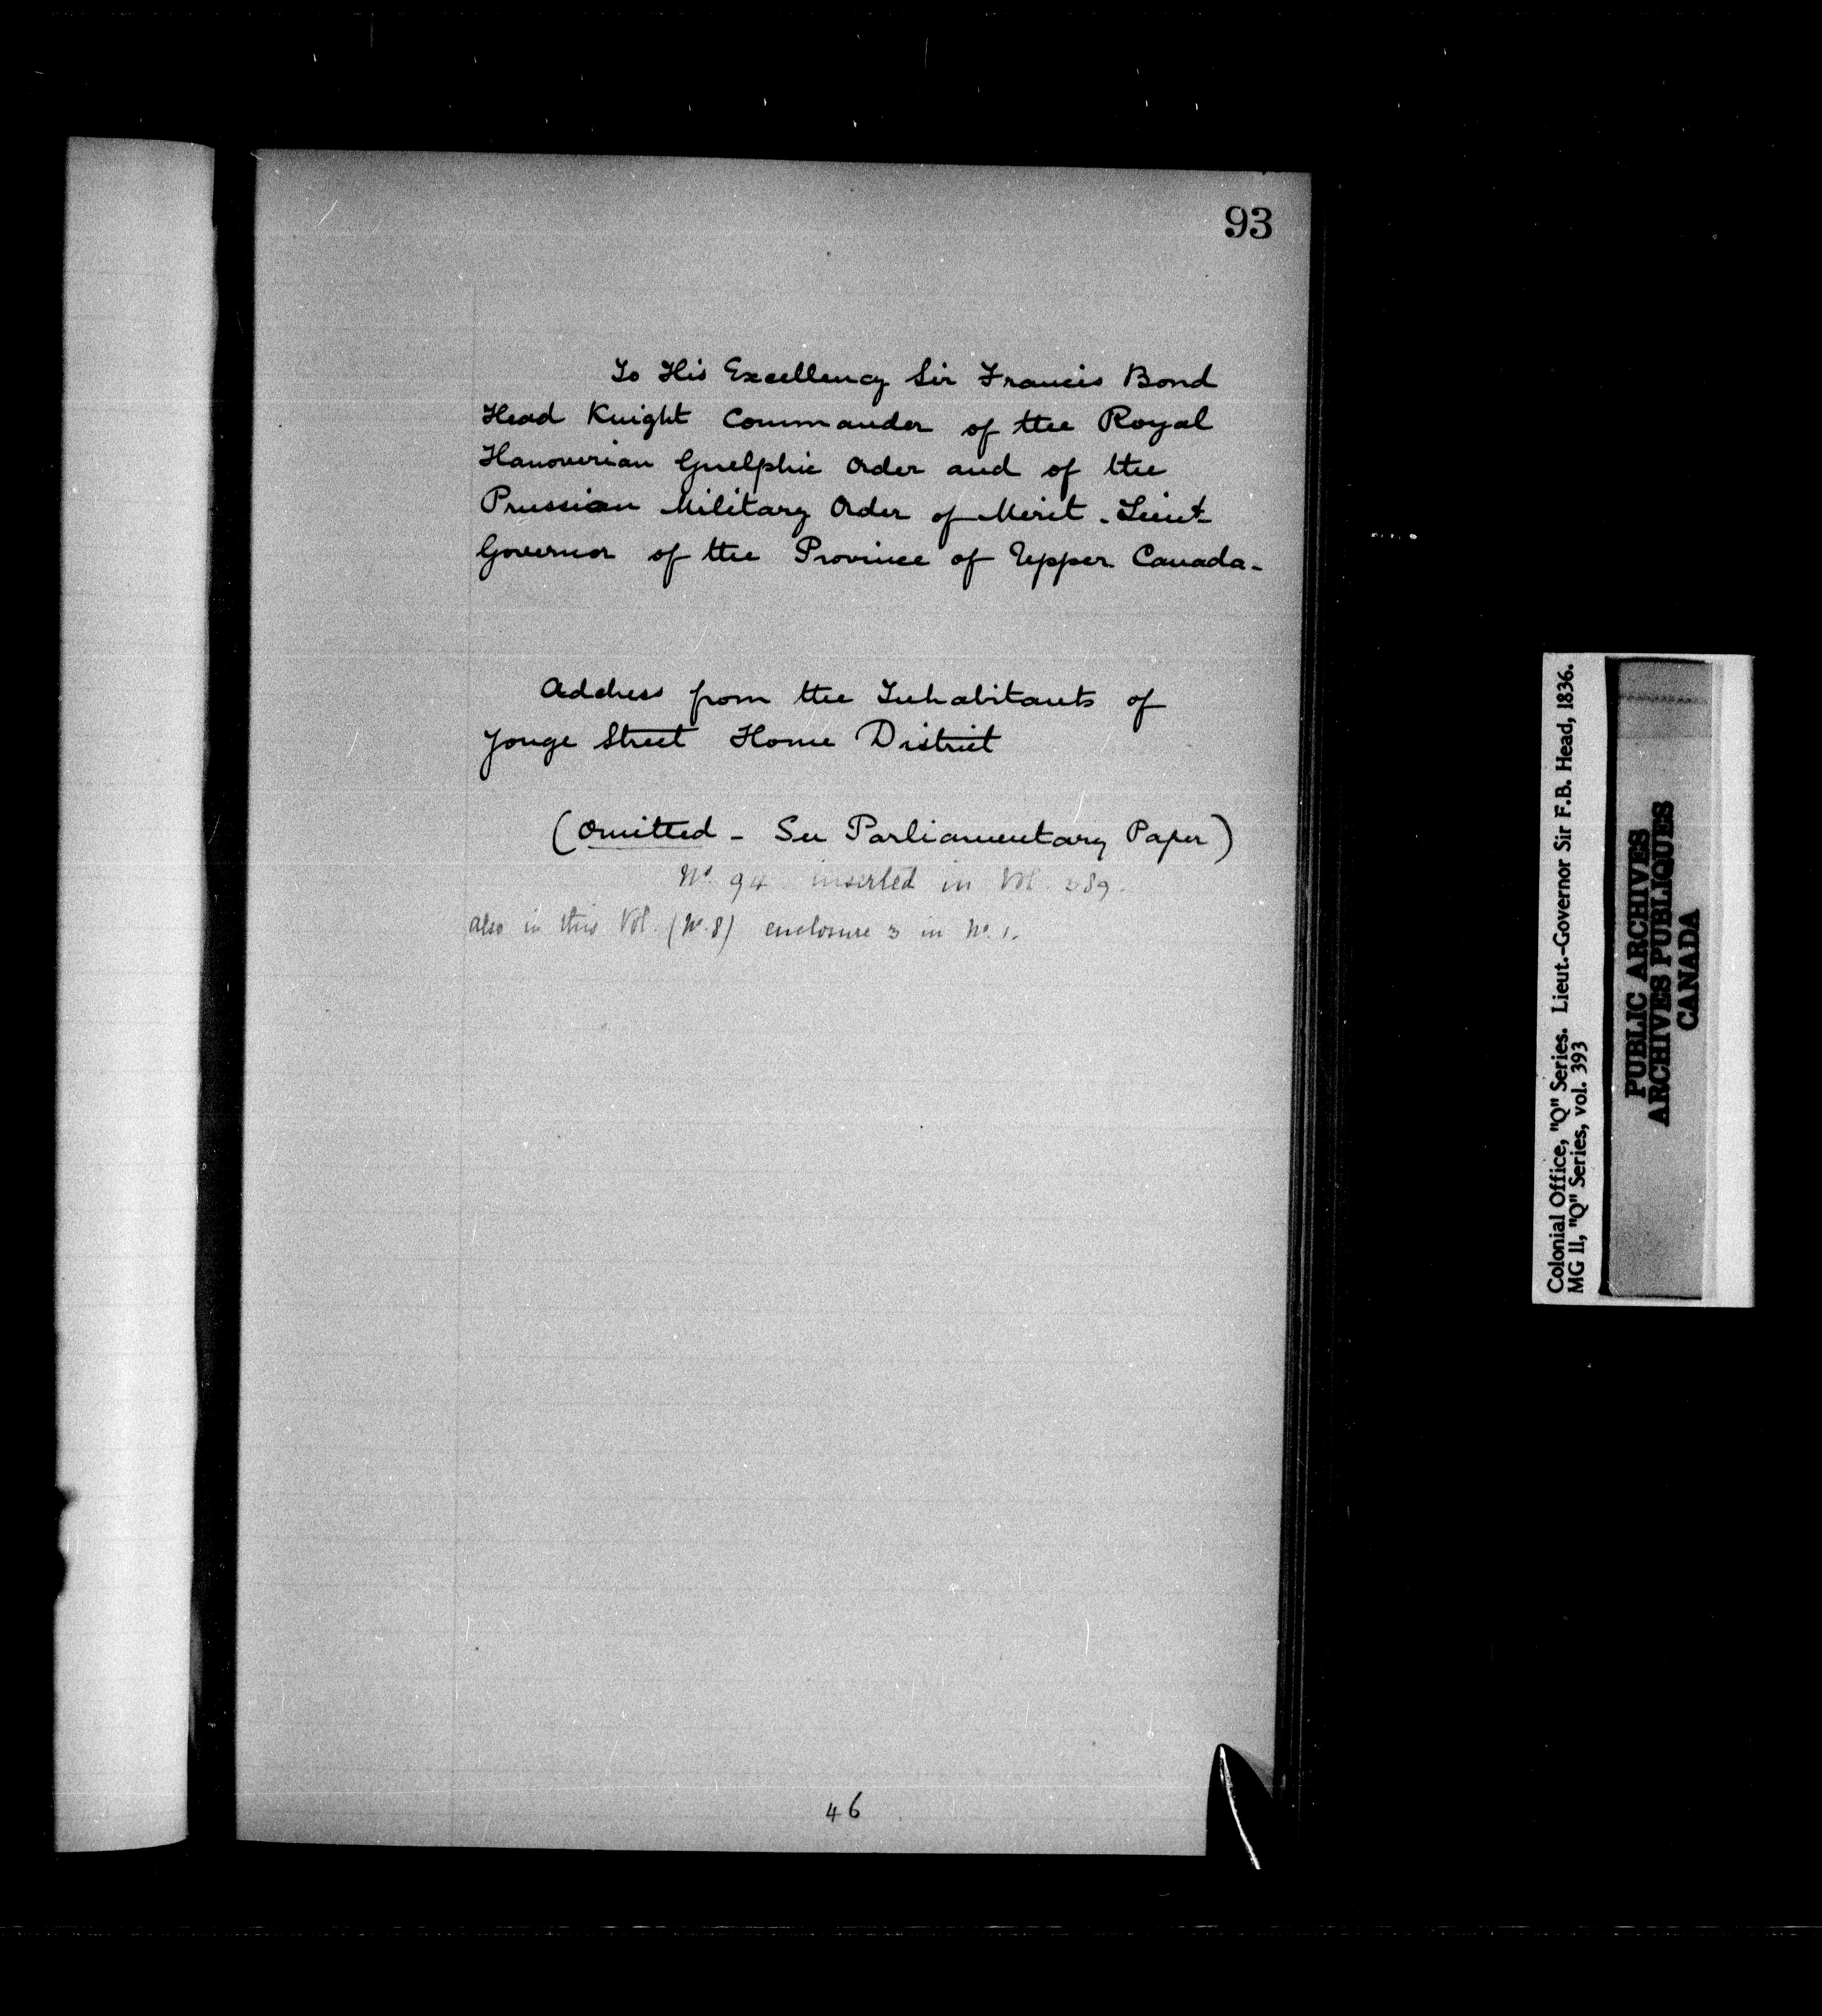 93
To His Excellency Sir Francis Bond
Head Knight Commander of the Royal
Hanoverian Guelphic Order and of the
Prussian Military Order of Merit - Lieut-
Governor of the Province of Upper Canada -
Address from the Inhabitants of
Yonge Street Home District
(Omitted - See Parliamentary Paper)
No. 94 inserted in Vol. 389.
also in this Vol. (No. 8) enclosure 3 in No. 1.
46
Colonial Office, "Q" Series. Lieut.-Governor Sir F.B. Head, 1836.
MG 11, "Q" Series, vol. 393
PUBLIC ARCHIVES
ARCHIVES PUBLIQUES
CANADA